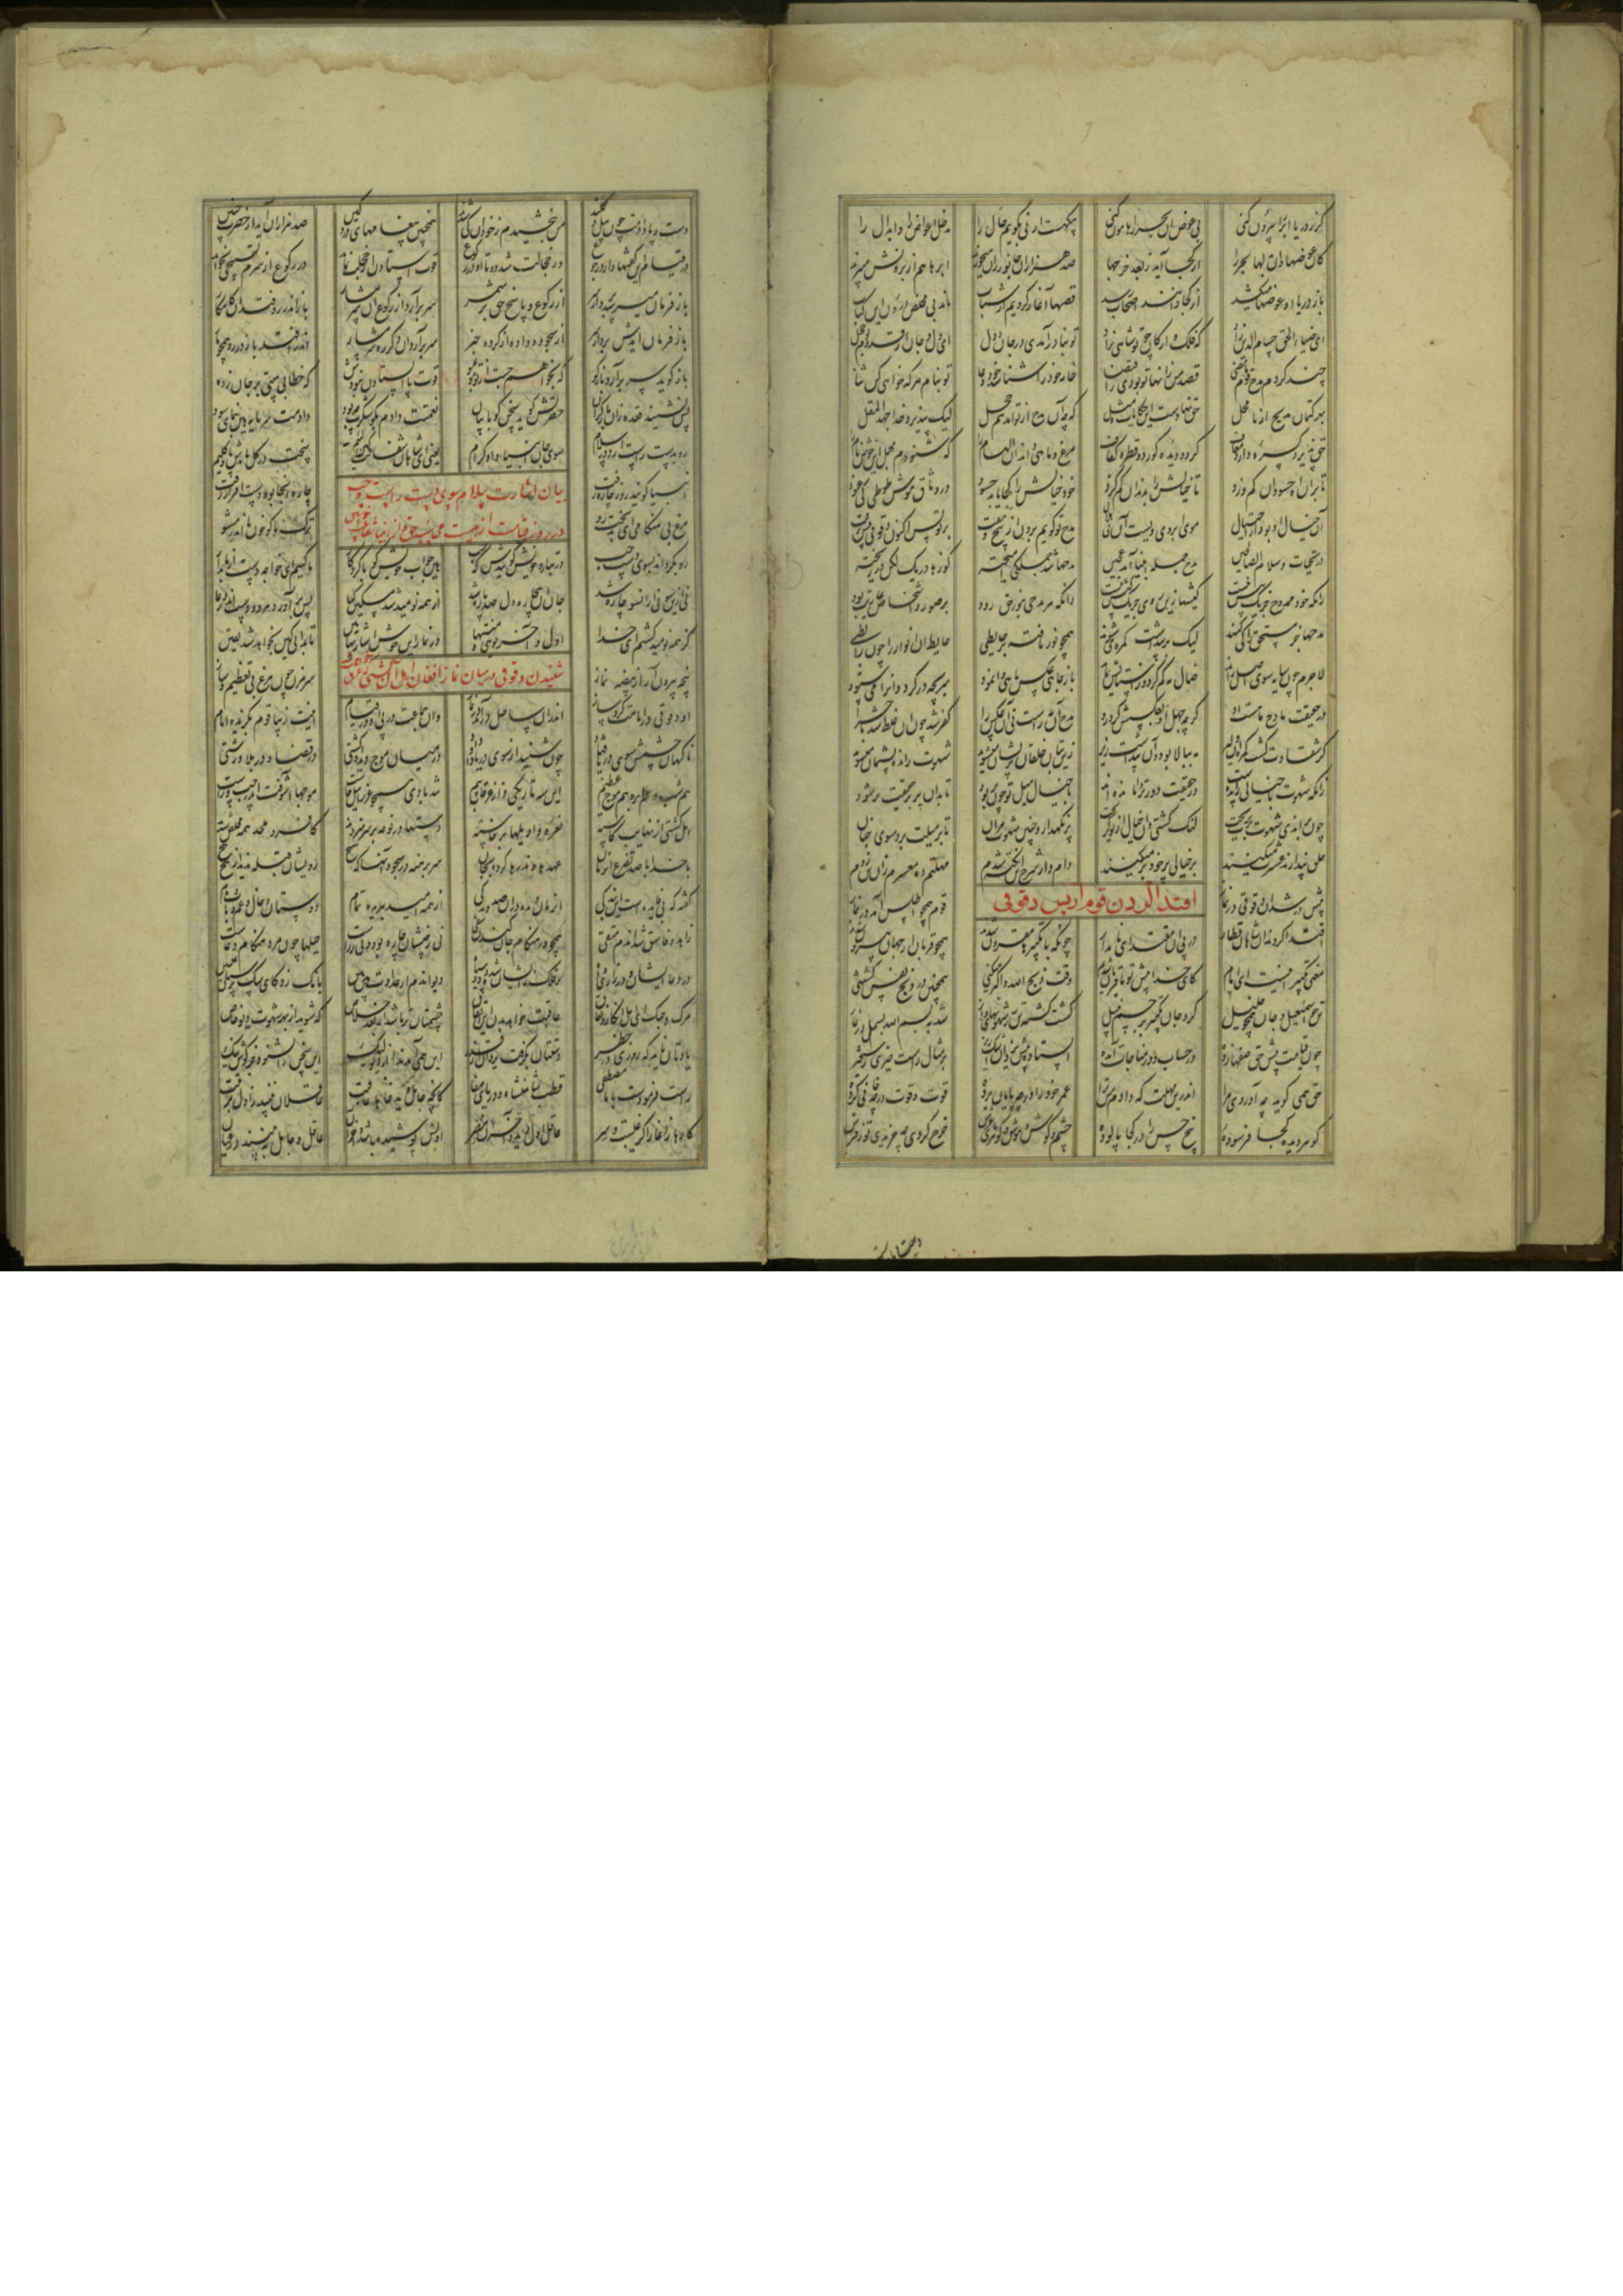 گر ز دریا آب را بیرون کنی بی عوض آن بحر را هامون کنی بیگهست ار نی بگویم حال را مدخل اعواض را و ابدال را
کان عوضها وان بدلها بحر را از کجا آید ز بعد خرجها صد هزاران جانور زو میخورند ابرها هم از برونش میبرند
باز دریا آن عوضها میکشد از کجا دانند اصحاب رشد قصها آغاز کردیم از شتاب ماند بی مخلص درون این کتاب
ای ضیاء الحق حسام الدین راد که فلک و ارکان چو تو شاهی نزاد تو بنادر آمدی در جان و دل ای دل و جان از قدوم تو خجل
چند کردم مدح قوم ما مضی قصد من زانها تو بودی ز اقتضا خانه خود را شناسد خود دعا تو بنام هر که خواهی کن ثنا
بهر کتمان مدیح از نا محل حق نهادست این حکایات و مثل گر چه آن مدح از تو هم آمد خجل لیک بپذیرد خدا جهد المقل
حق پذیرد کسره دارد معاف کز دو دیده کور دو قطره کفاف مرغ و ماهی داند آن ابهام را که ستودم مجمل این خوش نام را
تا بران آه حسودان کم وزد تا خیالش را بدندان کم گزد خود خیالش را کجا یابد حسود در وثاق موش طوطی کی غنود
آن خیال او بود از احتیال موی ابروی ویست آن نی هلال مدح تو گویم برون از پنج و هفت بر نویس اکنون دقوقی پیش رفت
در تحیات و سلام الصالحین مدح جمله انبیا آمد عجین مدحها شد جملگی آمیخته کوزها در یک لگن در ریخته
زانکه خود ممدوح جز یک بیش نیست کیشها زین روی جز یک کیش نیست دانکه هر مدحی بنور حق رود بر صور و اشخاص عاریت بود
مدحها جز مستحق را کی کنند لیک بر پنداشت گمره میشوند همچو نور تافته بر حایطی حایط آن انوار را چون رابطی
لاجرم چون سایه سوی اصل راند ضال مه گم کرد و ز استایش بماند یا ز چاهی عکس ماهی وا نمود سر بچه در کرد و آنرا میستود
در حقیقت مادح ماهست او گر چه جهل او بعکسش کرد رو مدح آن مه راست نی آن عکس را کفر شد چون آن غلط شد ماجرا
کز شقاوت گشت گمره آن دلیر مه ببالا بود و آن پنداشت زیر زین بتان خلقان پریشان میشوند شهوت رانده پشیمان میشوند
زانکه شهوت با خیالی رانده است وز حقیقت دورتر وا مانده است با خیال میل تو چون پر بود تا بدان پر بر حقیقت بر شود
چون براندی شهوت پرت بریخت لنگ گشتی وان خیال از تو گریخت پر نگهدار و چنین شهوت مران تا پر میلت برد سوی جنان
خلق پندارند عشرت میکنند بر خیالی پر خود بر میکنند وام دار شرح این نکته شدم مهلتم ده معسرم زان تن زدم
اقتدا کردن قوم از پس دقوقی
پیش در شد آن دقوقی در نماز قوم همچو اطلس آمد او طراز
اقتدا کردند آن شاهان قطار در پی آن مقتدای نامدار چونکه با تکبیرها مقرون شدند همچو قربان از جهان بیرون شدند
معنی تکبیر اینست ای امام کای خدا پیش تو ما قربان شدیم وقت ذبح الله اکبر میکنی همچنین در ذبح نفس کشتنی
تن چو اسمعیل و جان همچو خلیل کرد جان تکبیر بر جسم نبیل گشت کشته تن ز شهوتها و آز شد به بسم الله بسمل در نماز
چون قیامت پیش حق صفها زده در حساب و در مناجات آمده ایستاده پیش یزدان اشک ریز بر مثال راست خیز رستخیز
حق همی گوید چه آوردی مرا اندرین مهلت که دادم من ترا عمر خود را در چه پایان برده قوت و قوت در چه فانی کرده
گوهر دیده کجا فرسوده پنج حس را در کجا پالوده چشم و گوش و هوش و گوهرهای عرش خرج کردی چه خریدی تو ز فرش
دست و پا دادمت چون بیل و کلند من ببخشیدم ز خود آن کی شدند همچنین پیغامهای دردگین صد هزاران آید از حضرت چنین
در قیام این گفتها دارد رجوع وز خجالت شد دوتا او در رکوع قوت استادن از خجلت نماند در رکوع از شرم تسبیحی بخواند
باز فرمان میرسد بردار سر از رکوع و پاسخ حق بر شمر سر بر آرد از رکوع آن شرمسار باز اندر رو فتد آن خام کار
باز فرمان آیدش بردار سر از سجود و وا ده از کرده خبر سر بر آرد او دگر ره شرمسار اندر افتد باز در رو همچو مار
باز گوید سر بر آر و باز گو که بخواهم جست از تو مو بمو قوت پا ایستادن نبودش که خطاب هیبتی بر جان زدش
پس نشیند قعده زان بار گران حضرتش گوید سخن گو با بیان نعمتت دادم بگو شکرت چه بود دادمت سرمایه هین بنمای سود
رو بدست راست آرد در سلام سوی جان انبیا و آن کرام یعنی ای شاهان شفاعت کین لئیم سخت در گل ماندش پای و گلیم
بیان اشارت سلام سوی دست راست
در روز قیامت از هیبت
انبیا گویند روز چاره رفت چاره آنجا بود و دست افزار زفت
مرغ بی هنگامی ای بدبخت رو ترک ما گو خون ما اندر مشو
رو بگرداند بسوی دست چپ در تبار و خویش گویندش که خپ هین جواب خویش گو با کردگار ما کییم ای خواجه دست از ما بدار
نی ازین سو نی از آنسو چاره شد جان آن بیچاره دل صد پاره شد از همه نومید شد مسکین کیا پس بر آرد هر دو دست اندر دعا
کز همه نومید گشتم ای خدا اول و آخر تویی و منتها در نماز این خوش اشارتها ببین تا بدانی کین بخواهد شد یقین
شنیدن دقوقی در میان نماز افغان اهل آن کشتی
بچه بیرون آر از بیضه نماز سر مزن چون مرغ بی تعظیم و ساز
آن دقوقی در امامت کرد ساز اندر آن ساحل در آمد در نماز وان جماعت در پی او در قیام اینت زیبا قوم بگزیده امام
ناگهان چشمش سوی دریا فتاد چون شنید از سوی دریا داد داد در میان موج دید او کشتی در قضا و در بلا و زشتی
هم شب و هم ابر و هم موج عظیم این سه تاریکی و از غرقاب بیم تند بادی همچو عزرائیل خاست موجها آشوفت اندر چپ و راست
اهل کشتی از مهابت کاسته نعره و اویلها برخاسته دستها در نوحه بر سر میزدند کافر و ملحد همه مخلص شدند
با خدا با صد تضرع آن زمان عهدها و نذرها کرده بجان سر برهنه در سجود آنها که هیچ رویشان قبله ندید از پیچ پیچ
گفته که بی فایده است این بندگی آن زمان دیده دران صد زندگی از همه امید ببریده تمام دوستان و خال و عم و باب و مام
زاهد و فاسق شد آندم متقی همچو در هنگام جان کندن شقی نی ز چپشان چاره بود و نی ز راست حیلها چون مرد هنگام دعاست
در دعا ایشان و در زاری و آه بر فلک زیشان شده دود سیاه دیو آندم از عداوت بین بین بانگ زد کای سگ پرستان علتین
مرگ و جسک ای اهل انکار و نفاق عاقبت خواهد بدن این اتفاق چشمتان تر باشد از بعد خلاص که شوید از بهر شهوت دیو خاص
یادتان ناید که روزی در خطر دستتان بگرفت یزدان از قدر این همی آمد ندا از دیو لیک این سخن را نشنود جز گوش نیک
راست فرمودست با ما مصطفی قطب و شاهنشاه و دریای صفا کانچه جاهل دید خواهد عاقبت عاقلان بینند ز اول مرتبت
کارها ز آغاز اگر غیبست و سر عاقل اول دید و آخر آن مصر اولش پوشیده باشد و آخر آن عاقل و جاهل ببینند در عیان